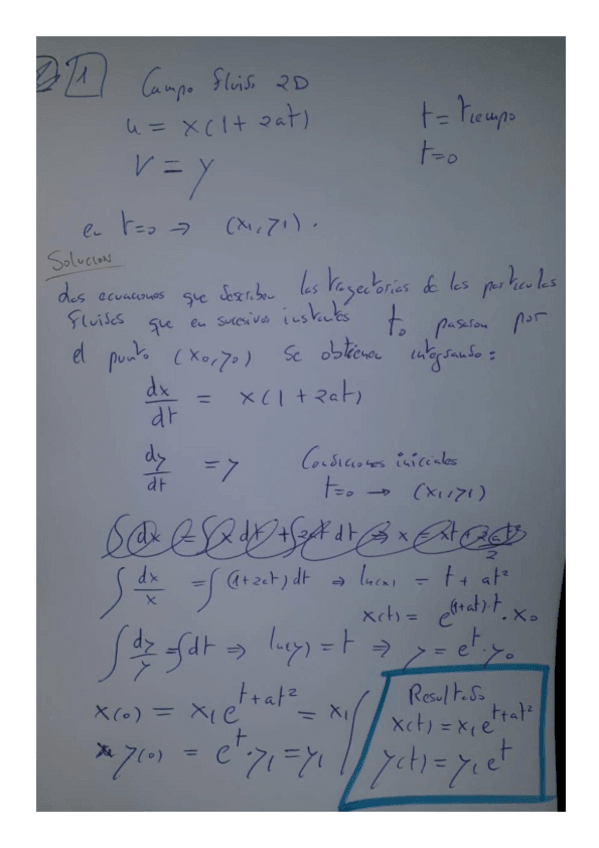 1 Campo fluido 2D
u = x(1+2at) t = tiempo
V = y t=0
en t=0 → (x1, y1).
Solucion
Las ecuaciones que describen las trayectorias de las particulas
fluidas que en sucesivos instantes t0 pasaron por
el punto (x0, y0) se obtienen integrando:
dx/dt = x(1+2at)
dy/dt = y Condiciones iniciales
t=0 → (x1, y1)
∫ dx/x = ∫(1+2at) dt ⇒ ln(x) = t + at²
x(t) = e^(1+at)·t · x0
∫ dy/y = ∫dt ⇒ ln(y) = t ⇒ y = e^t · y0
x(0) = x1 e^t+at² = x1
y(0) = e^t · y1 = y1
Resultado
x(t) = x1 e^t+at²
y(t) = y1 e^t